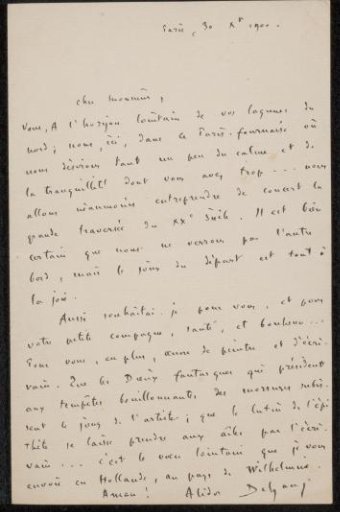 Paris, 30 Xbre 1900.
cher monsieur,
Vous, à l'horizon lointain de vos lagunes du
nord ; nous, ici, dans ce Paris-fournaise où
nous désirons tant un peu du calme et de
la tranquillité dont vous avez trop... nous
allons néanmoins entreprendre de concert la
grande traversée du XXe siècle. Il est bien
certain que nous ne verrons pas l'autre
bord, mais le jour du départ est tout à
la joie.
Aussi souhaitai-je pour vous, et pour
votre petite compagne, santé, et bonheur...
Pour vous, en plus, œuvre de peintre et d'écri-
vain. Que les Dieux fantasques qui président
aux tempêtes bouillonnantes des morsures
sent le joug de l'artiste ; que le lutin de l'épi-
thète se laisse prendre aux ailes par l'écri-
vain... c'est le vœu lointain que je vous
envoie en Hollande, au pays de Wilhelmine.
Amen ! Alidor Delzant